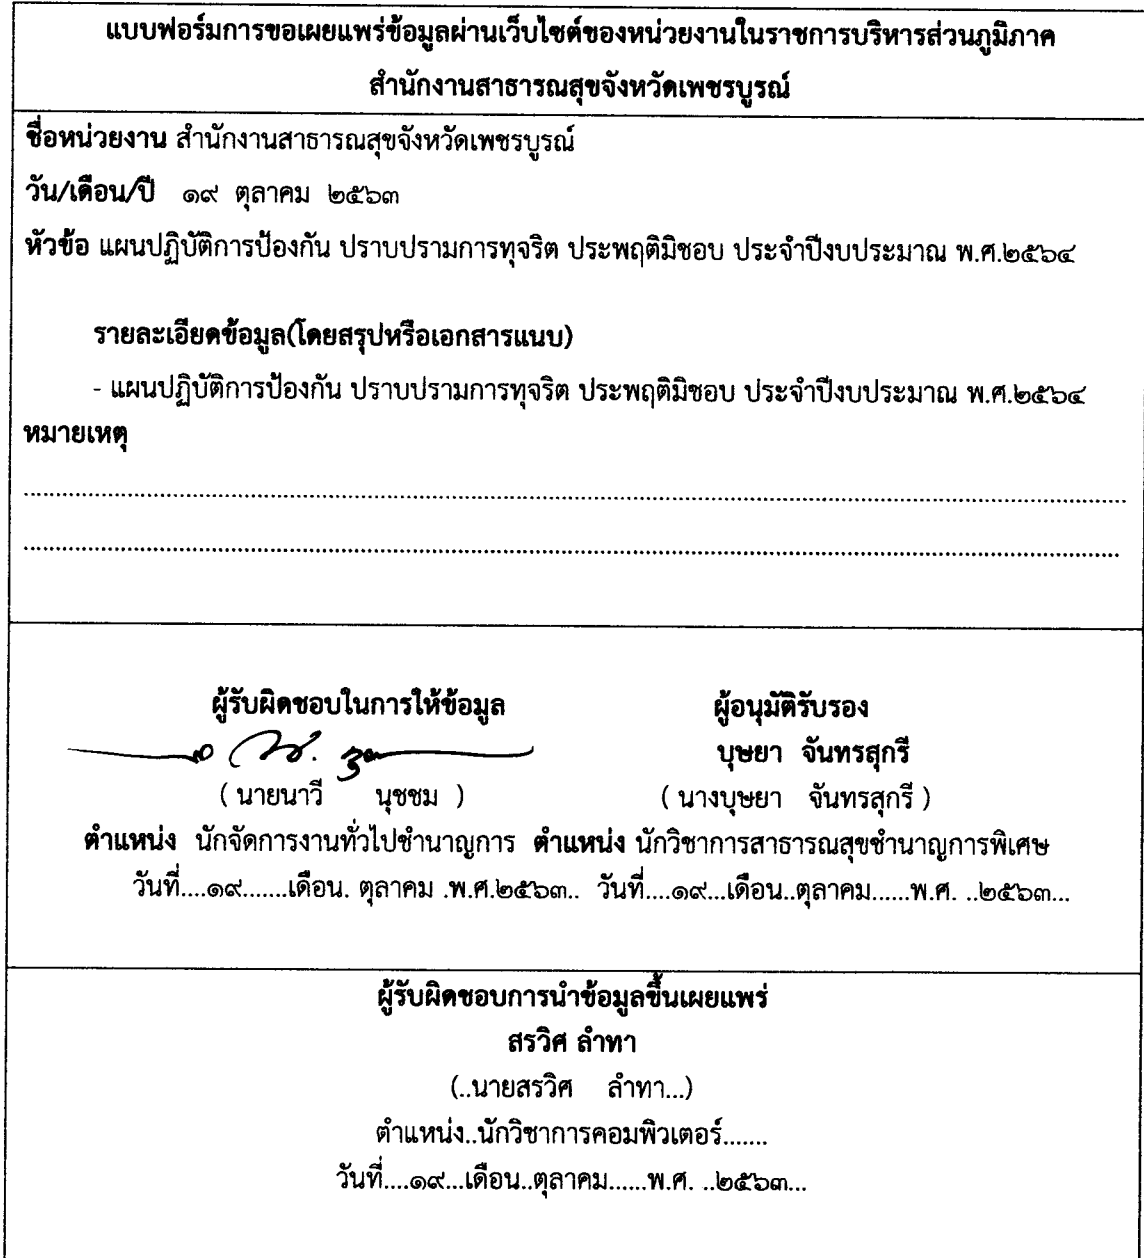 แบบฟอร์มการขอเผยแพร่ข้อมูลผ่านเว็บไซต์ของหน่วยงานในราชการบริหารส่วนภูมิภาค
สำนักงานสาธารณสุขจังหวัดเพชรบูรณ์
ชื่อหน่วยงาน สำนักงานสาธารณสุขจังหวัดเพชรบูรณ์
วัน/เดือน/ปี ๑๙ ตุลาคม ๒๕๖๓
หัวข้อ แผนปฏิบัติการป้องกัน ปราบปรามการทุจริต ประพฤติมิชอบ ประจำปีงบประมาณ พ.ศ.๒๕๖๔
รายละเอียดข้อมูล(โดยสรุปหรือเอกสารแนบ)
- แผนปฏิบัติการป้องกัน ปราบปรามการทุจริต ประพฤติมิชอบ ประจำปีงบประมาณ พ.ศ.๒๕๖๔
หมายเหตุ
ผู้รับผิดชอบในการให้ข้อมูล ผู้อนุมัติรับรอง
บุษยา จันทรสุกรี
( นายนาวี นุชชม ) ( นางบุษยา จันทรสุกรี )
ตำแหน่ง นักจัดการงานทั่วไปชำนาญการ ตำแหน่ง นักวิชาการสาธารณสุขชำนาญการพิเศษ
วันที่....๑๙.......เดือน. ตุลาคม .พ.ศ.๒๕๖๓.. วันที่....๑๙...เดือน..ตุลาคม......พ.ศ. ..๒๕๖๓...
ผู้รับผิดชอบการนำข้อมูลขึ้นเผยแพร่
สรวิศ ลำทา
(..นายสรวิศ ลำทา...)
ตำแหน่ง..นักวิชาการคอมพิวเตอร์.......
วันที่....๑๙...เดือน..ตุลาคม......พ.ศ. ..๒๕๖๓...